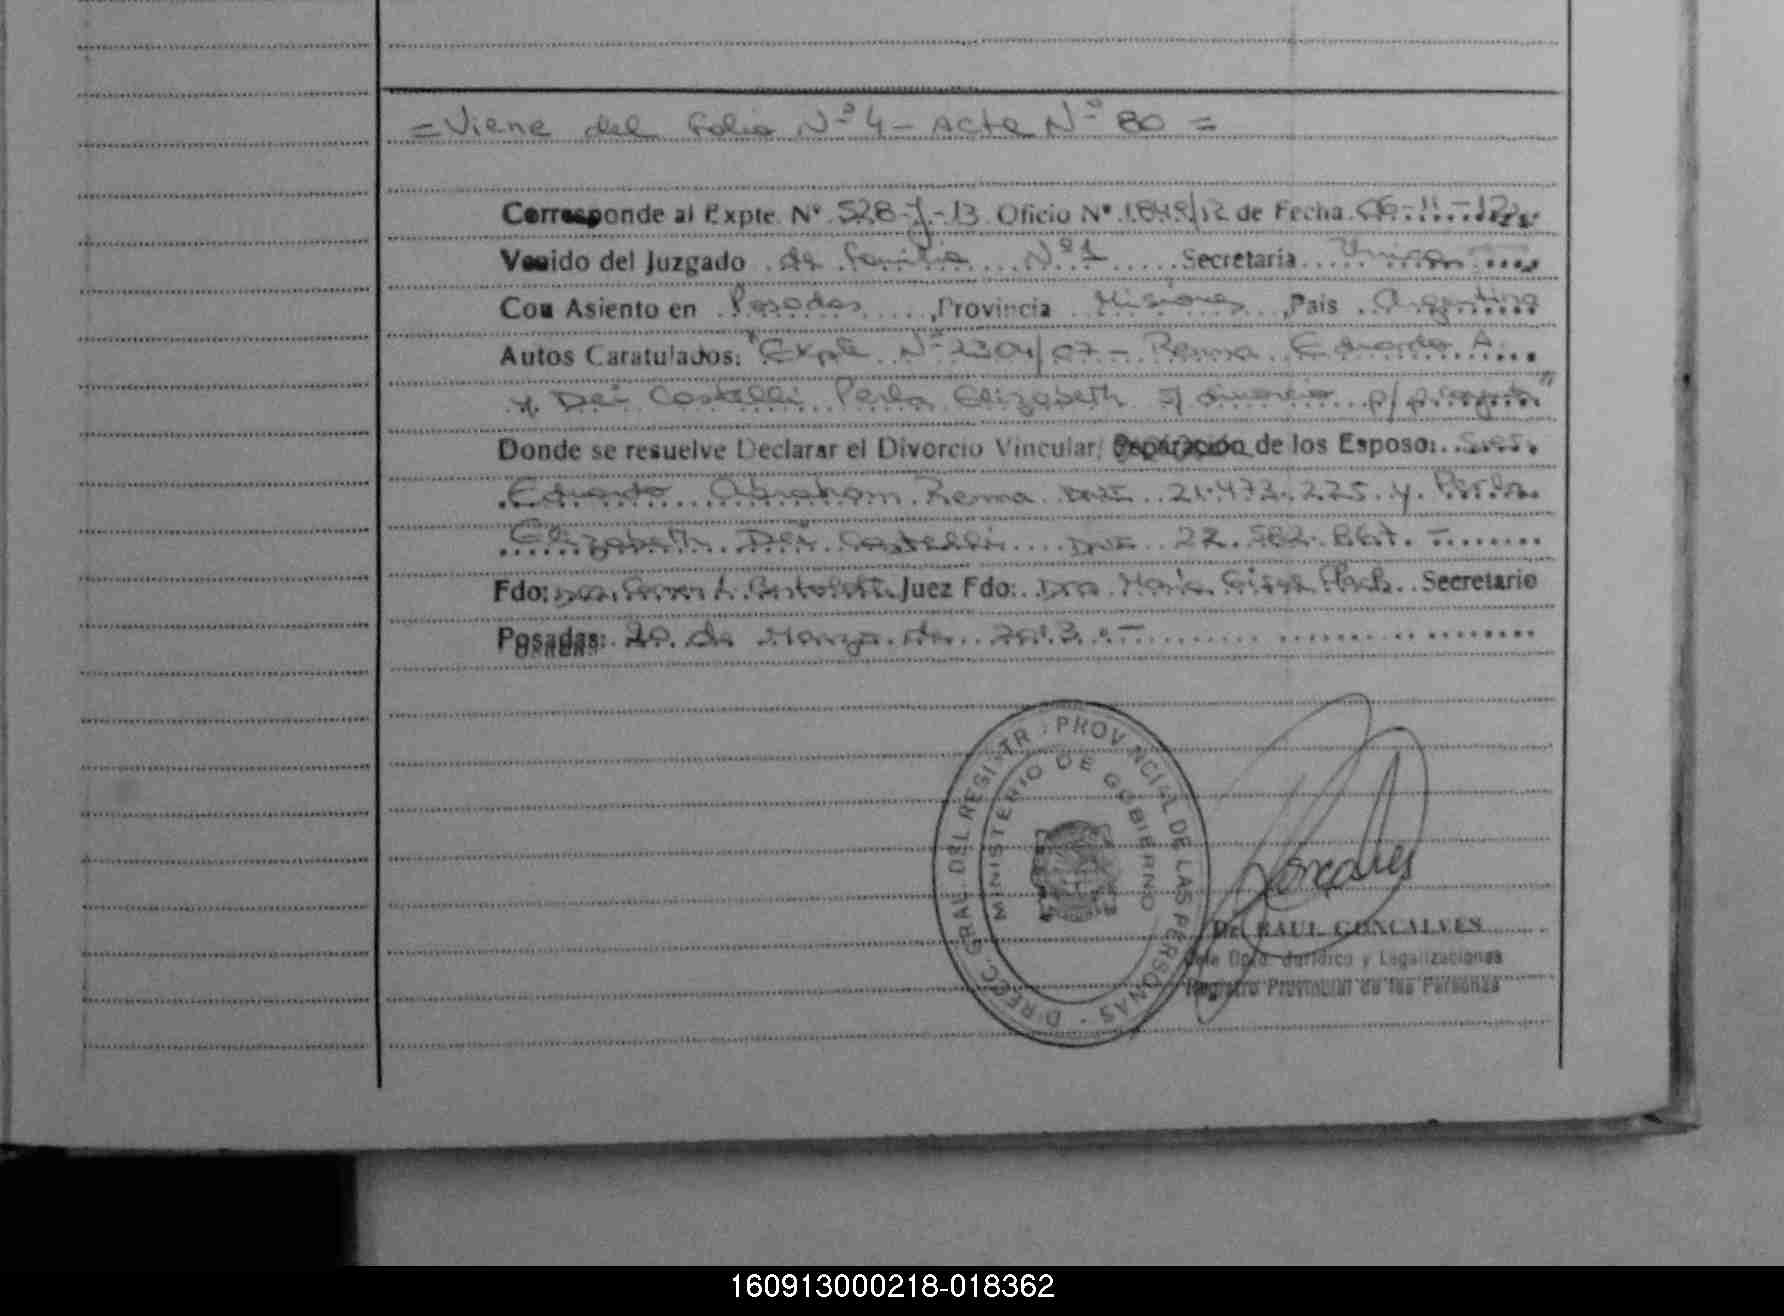 = Viene del folio Nº 4 - Acta Nº 80 =
Corresponde al Expte. Nº 528-J-13 Oficio Nº 1849/12 de Fecha 06-11-12
Venido del Juzgado de familia Nº 1 Secretaria Unica
Con Asiento en Posadas, Provincia Misiones, Pais Argentina
Autos Caratulados: "Expte Nº 2304/07 - Renna Eduardo A.
y Dei Castelli Perla Elizabeth s/ divorcio p/p
Donde se resuelve Declarar el Divorcio Vincular/ Separación de los Esposo: Sres.
Eduardo Abraham Renna DNI 21.473.225 y Perla
Elizabeth Dei Castelli DNI 22.582.867. -
Fdo: Juez Fdo: Dra Maria Secretario
Posadas: 20 de Marzo de 2013. -
DIRECC. GRAL. DEL REGISTR. PROVINCIAL DE LAS PERSONAS -
MINISTERIO DE GOBIERNO
Goncalves
Dr. RAUL GONCALVES
Jefe Dpto. Jurídico y Legalizaciones
Registro Provincial de las Personas
160913000218-018362